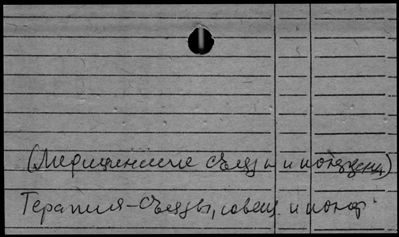 (Медицинские съезды и конференц.)
Терапия-съезды, совещ. и конф.